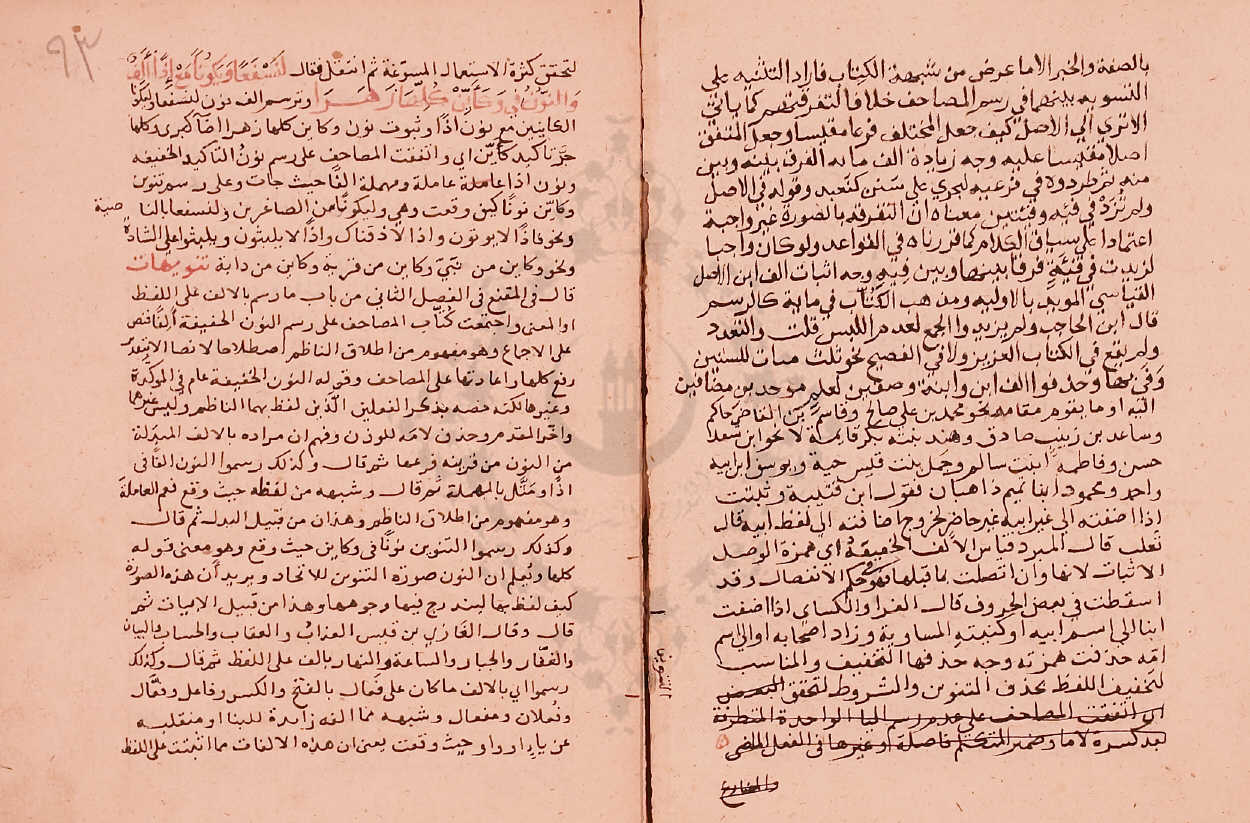 بالصفة والخبر الا ما عرض من شبهة الكتاب فاراد التنبيه على
التسوية بينهما في رسم المصاحف خلافا لتفرقتهم كما ياتي
الا ترى الى الاصل كيف جعل المختلف فرعا مقيسا وجعل المتفق
اصلا مقيسا عليه وجه زيادة الف مايه الفرق بينه وبين
منه ثم طردوه في فرعيه ليجري على سنن كتعد وقوله في الاصل
ولم تزد في فئه وفئتين معناه ان التفرقة بالصورة غير واجبة
اعتمادا على سياق الكلام كما قررناه في القواعد ولو كان واجبا
لزيدت في فئة فرقا بينها وبين فيه وجه اثبات الف ابن الاصل
القياسي المويد بالاوليه ومذهب الكتاب في ماية كالرسم
قال ابن الحاجب ولم يزيدوا الجمع لعدم اللبس قلت والتعدد
ولم يقع في الكتاب العزيز ولا في الفصيح نحو ثلث ميات للستين
وفي بها وحذفوا الف ابن وابنة وصفين لعلم موحد بن مضافين
اليه او ما يقوم مقامه نحو محمد بن علي صالح وقاسم بن القاضي حاكم
وساعد بن زينب صادق وهند بنت بكر قايمة لا نحو ابن سعد
حسن وفاطمة ابنت سالم وجمل بنت قيس حية ويوسف ابن ابيه
واحمد ومحمود ابنا تميم ذاهبان لقول ابن قتيبة وثبتت
اذا اضفته الى غير ابيه غير حاضر لخروج اضافته الى لفظ ابيه قال
ثعلب قال المبرد قياس الالف الحقيقة اي همزة الوصل
الاثبات لانها وان اتصلت بما قبلها فهو في حكم الانفصال وقد
اسقطت في بعض الحروف قال الفرا والكساي اذا اضفت
ابنا الى اسم ابيه او كنيته المساوية وزاد اصحابه او الى اسم
امه حذفت همزته وجه حذفها التخفيف والمناسب
لتخفيف اللفظ بحذف التنوين والشروط لتحقق البعض
اي اتفقت المصاحف على عدم رسم اليا الواحدة المتطرفة
بعد كسرة لاما وضمير المتكلم فاصلة او غيرها في الفعل الماضي
والمضارع
التنوين
٩٣
لتحقق كثرة الاستعمال المسوغة ثم انتقل فقال لنسفعا وليكونا مع اذا الف
والنون في وكاين كلها زهرا وترسم الف نون لنسفعا وليكونا
الكاينين مع نون اذا وثبوت نون وكاين كلها زهرا اضا كبرى وكلها
جر تاكيد كاين اي واتفقت المصاحف على رسم نون التاكيد الخفيفه
ونون اذا عاملة ومهملة الفا حيث جات وعلى رسم تنوين
وكاين نونا كيف وقعت وهي وليكونا من الصاغرين ولنسفعا بالنا صية
ونحو فاذا لا يوتون واذا لاذقناك واذا لا يلبثون ويلبثوا على الشاذة
ونحو وكاين من نبي وكاين من قرية وكاين من دابة تنويهات
قال في المقنع في الفصل الثاني من باب ما رسم بالالف على اللفظ
او المعنى واجتمعت كتاب المصاحف على رسم النون الخفيفة الفا فنص
على الاجماع وهو مفهوم من اطلاق الناظم اصطلاحا لا نصا الابتعد
رفع كلها واعادتها على المصاحف وقوله النون الخفيفة عام في الموكدة
وغيرها لكنه خصه بذكر الفعلين الذين لفظ بهما الناظم وليس غيرها
واخر المقدم وحذف لامه للوزن وفهم ان مراده بالالف المبدلة
من النون من قرينه فرعها ثم قال وكذلك رسموا النون الفا في
اذا ومثل بالمهملة ثم قال وشبهه من لفظه حيث وقع فعم العاملة
وهو مفهوم من اطلاق الناظم وهذان من قبيل البدل ثم قال
وكذلك رسموا التنوين نونا في وكاين حيث وقع وهو معنى قوله
كلها ويعلم ان النون صورة التنوين للاتحاد ويريد ان هذه الصورة
كيف لفظ بها ليندرج فيها وجوهها وهذا من قبيل الاثبات ثم
قال وقال الغازي بن قيس العذاب والعقاب والحساب والبيان
والغفار والجبار والساعة والنهار بالف على اللفظ ثم قال وكذلك
رسموا اي بالالف ما كان على فعال بالفتح والكسر وفاعل وفعال
وفعلان ومفعال وشبهه مما الفه زايدة للبنا او منقلبه
عن يا او واو حيث وقعت يعنى ان هذه الالفات مما اثبتت على اللفظ